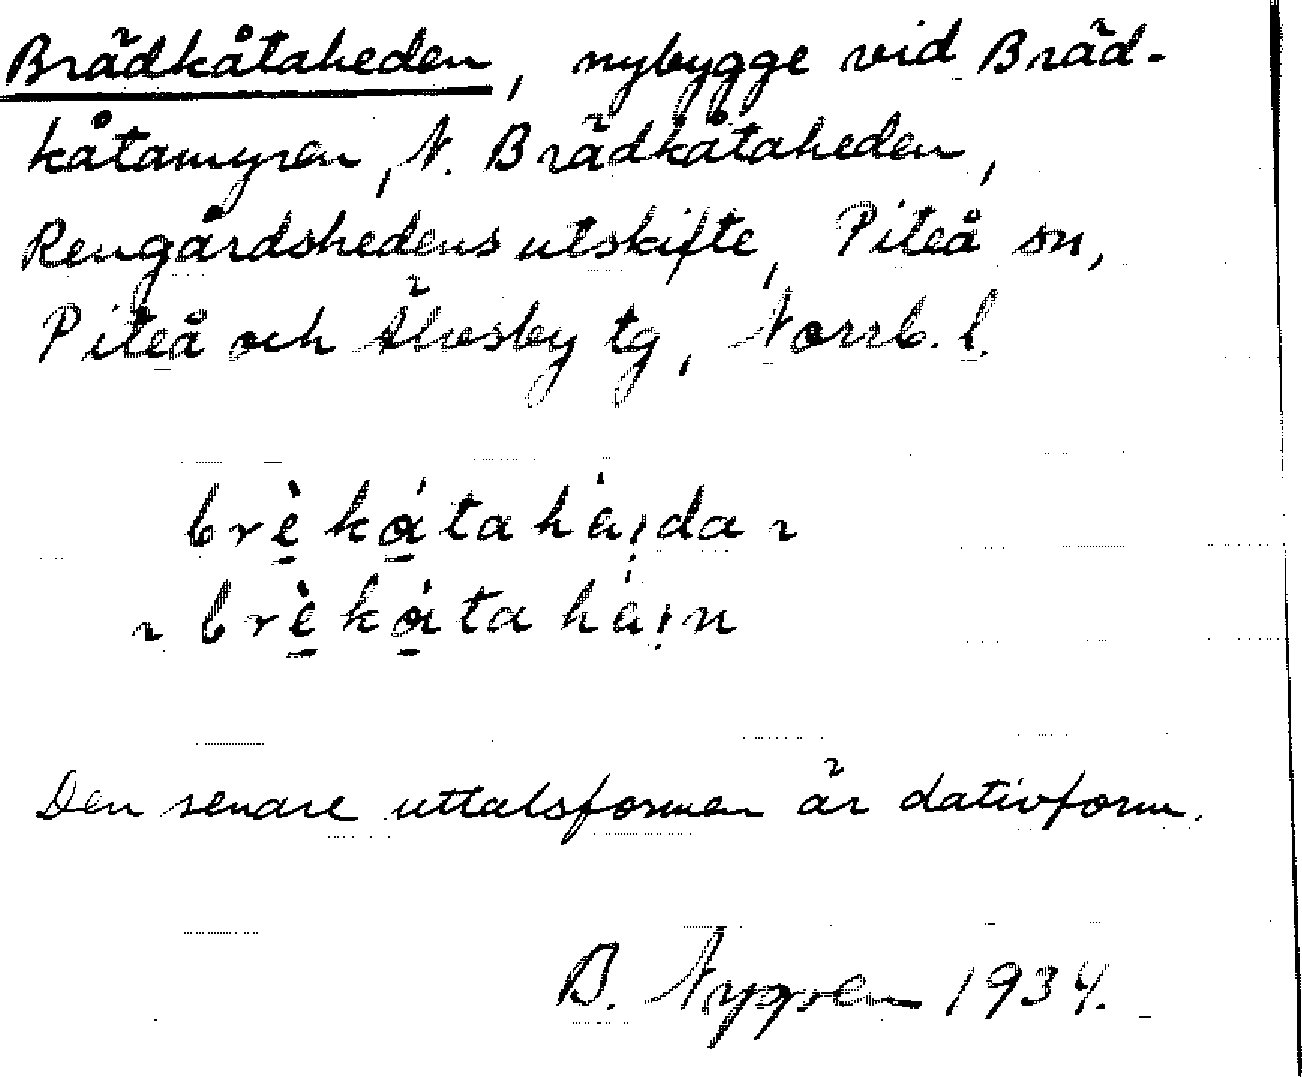 Brädkåtaheden, nybygge vid Bräd-
kåtamyren, N. Brädkåtaheden,
Rengårdshedens utskifte, Piteå sn,
Piteå och Älvsby tg, Norrb. l.
brè̱ká̱taha̍ı̣da ~
~ brè̱ká̱taha̍ı̣n
Den senare uttalsformen är dativform.
B. 1934.